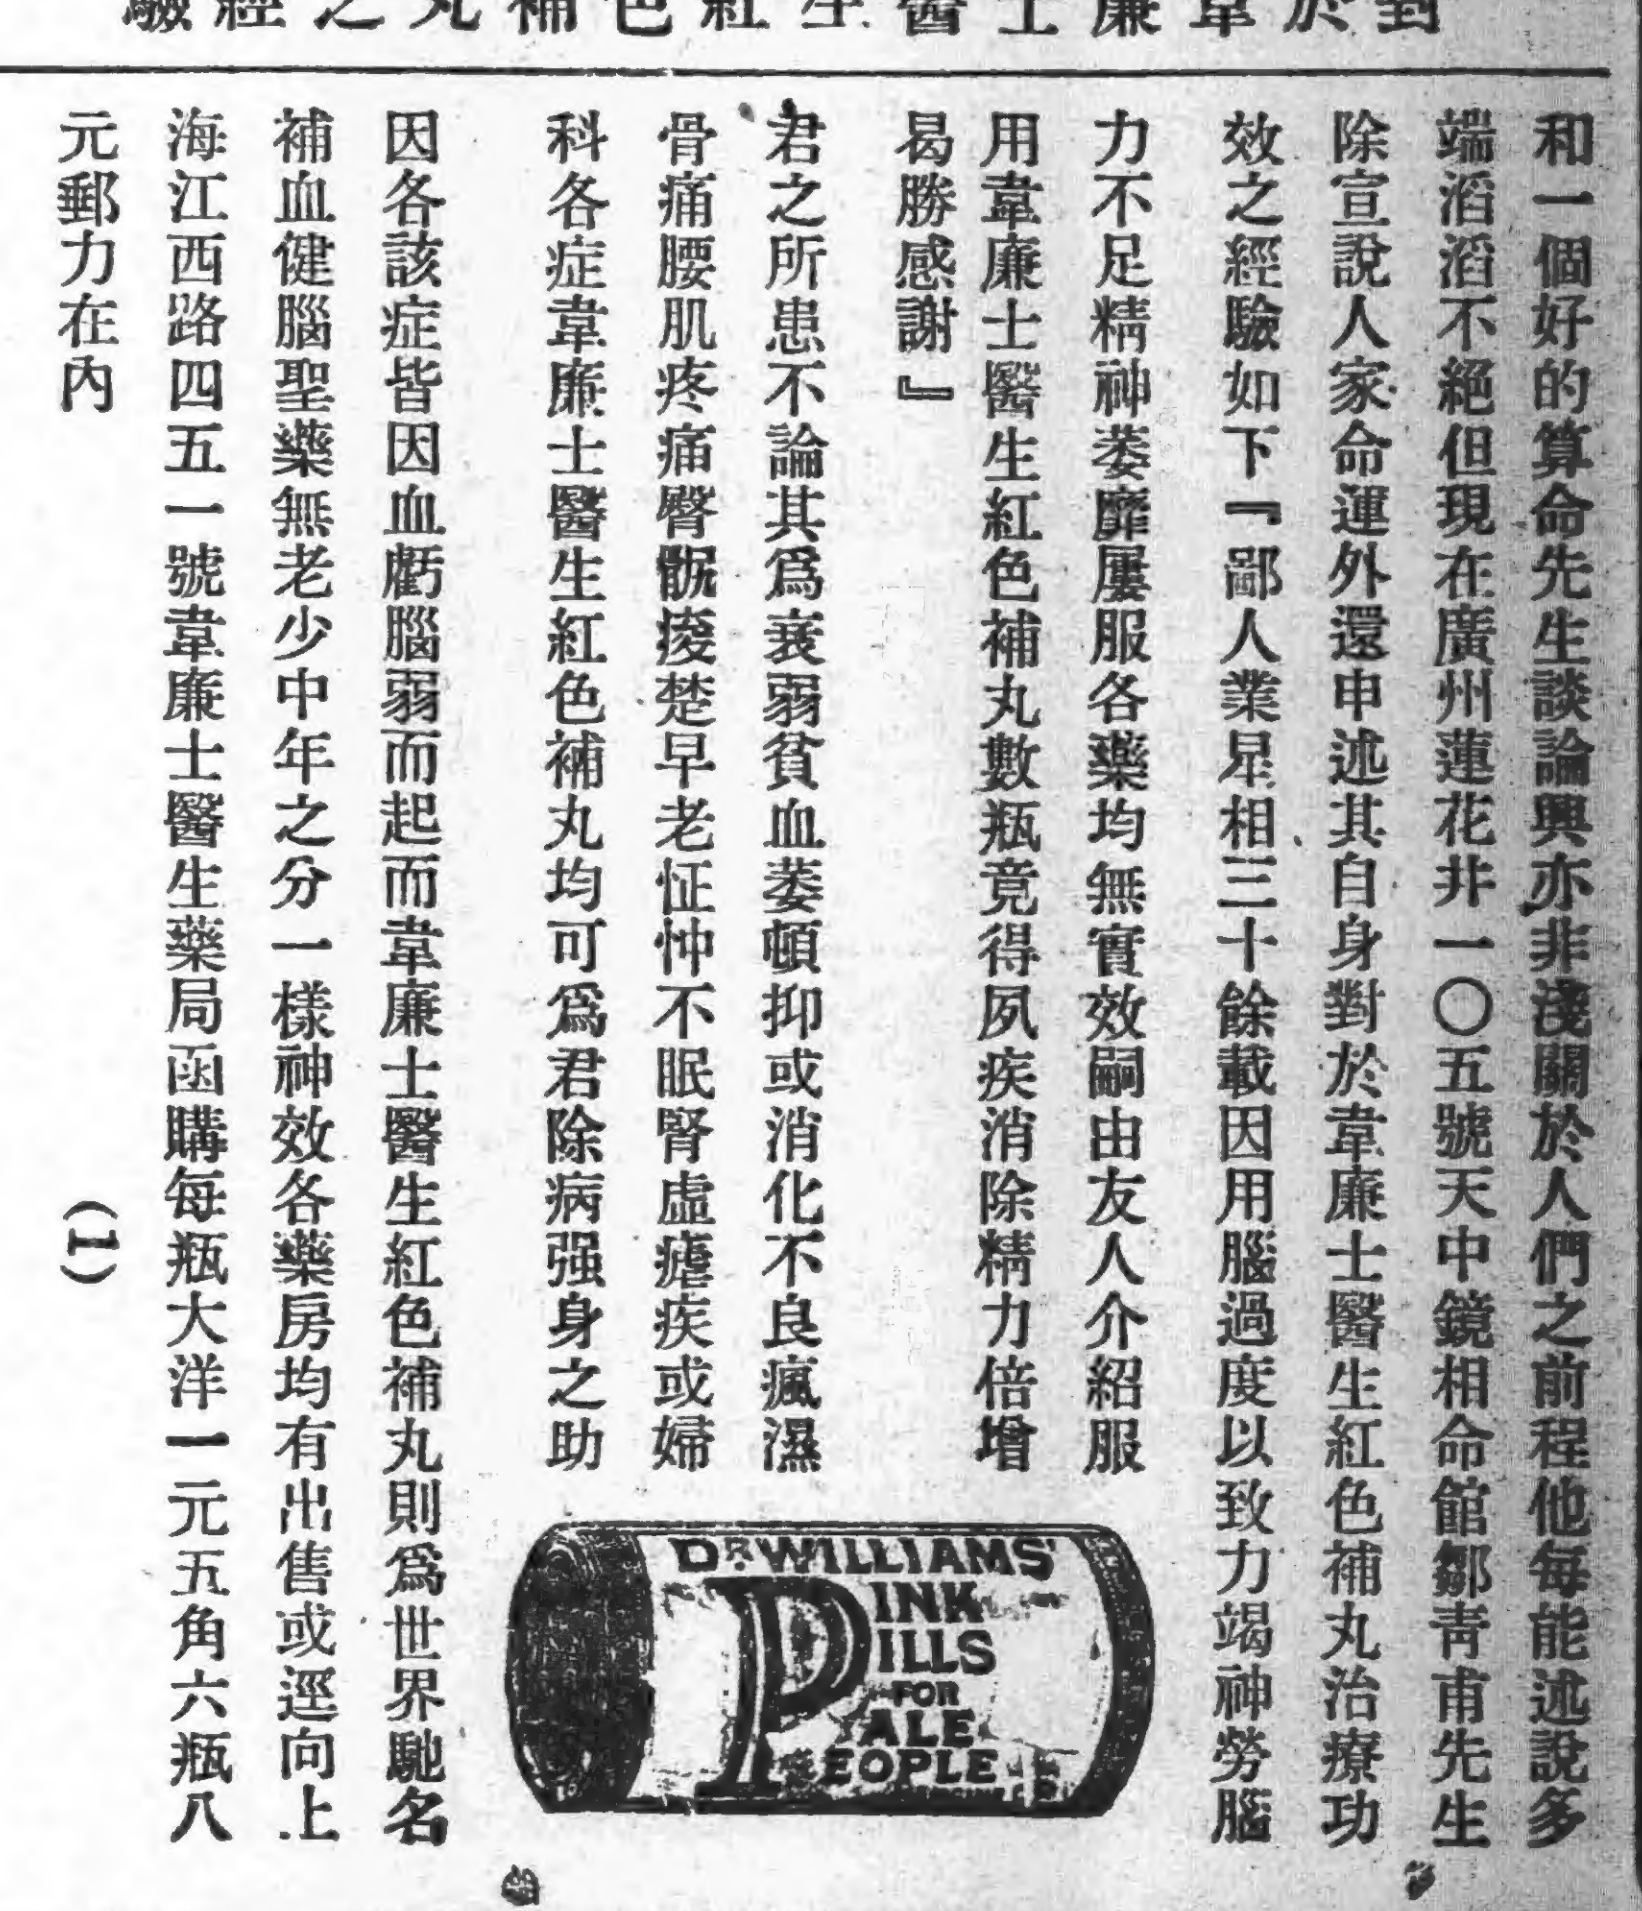 對於韋廉士醫生紅色補丸之經驗
和一個好的算命先生談論興亦非淺關於人們之前程他每能述說多
端滔滔不絕但現在廣州蓮花井一〇五號天中鏡相命館鄒靑甫先生
除宣說人家命運外還申述其自身對於韋廉士醫生紅色補丸治療功
效之經驗如下『鄙人業星相三十餘載因用腦過度以致力竭神勞腦
力不足精神萎靡屢服各藥均無實效嗣由友人介紹服
用韋廉士醫生紅色補丸數瓶竟得夙疾消除精力倍增
曷勝感謝』
君之所患不論其爲衰弱貧血萎頓抑或消化不良瘋濕
骨痛腰肌疼痛臀骶痠楚早老怔忡不眠腎虛瘧疾或婦
科各症韋廉士醫生紅色補丸均可爲君除病强身之助
因各該症皆因血虧腦弱而起而韋廉士醫生紅色補丸則爲世界馳名
補血健腦聖藥無老少中年之分一樣神效各藥房均有出售或逕向上
海江西路四五一號韋廉士醫生藥局函購每瓶大洋一元五角六瓶八
元郵力在內
(1)
DR. WILLIAMS'
PINK
PILLS
FOR
PALE
PEOPLE